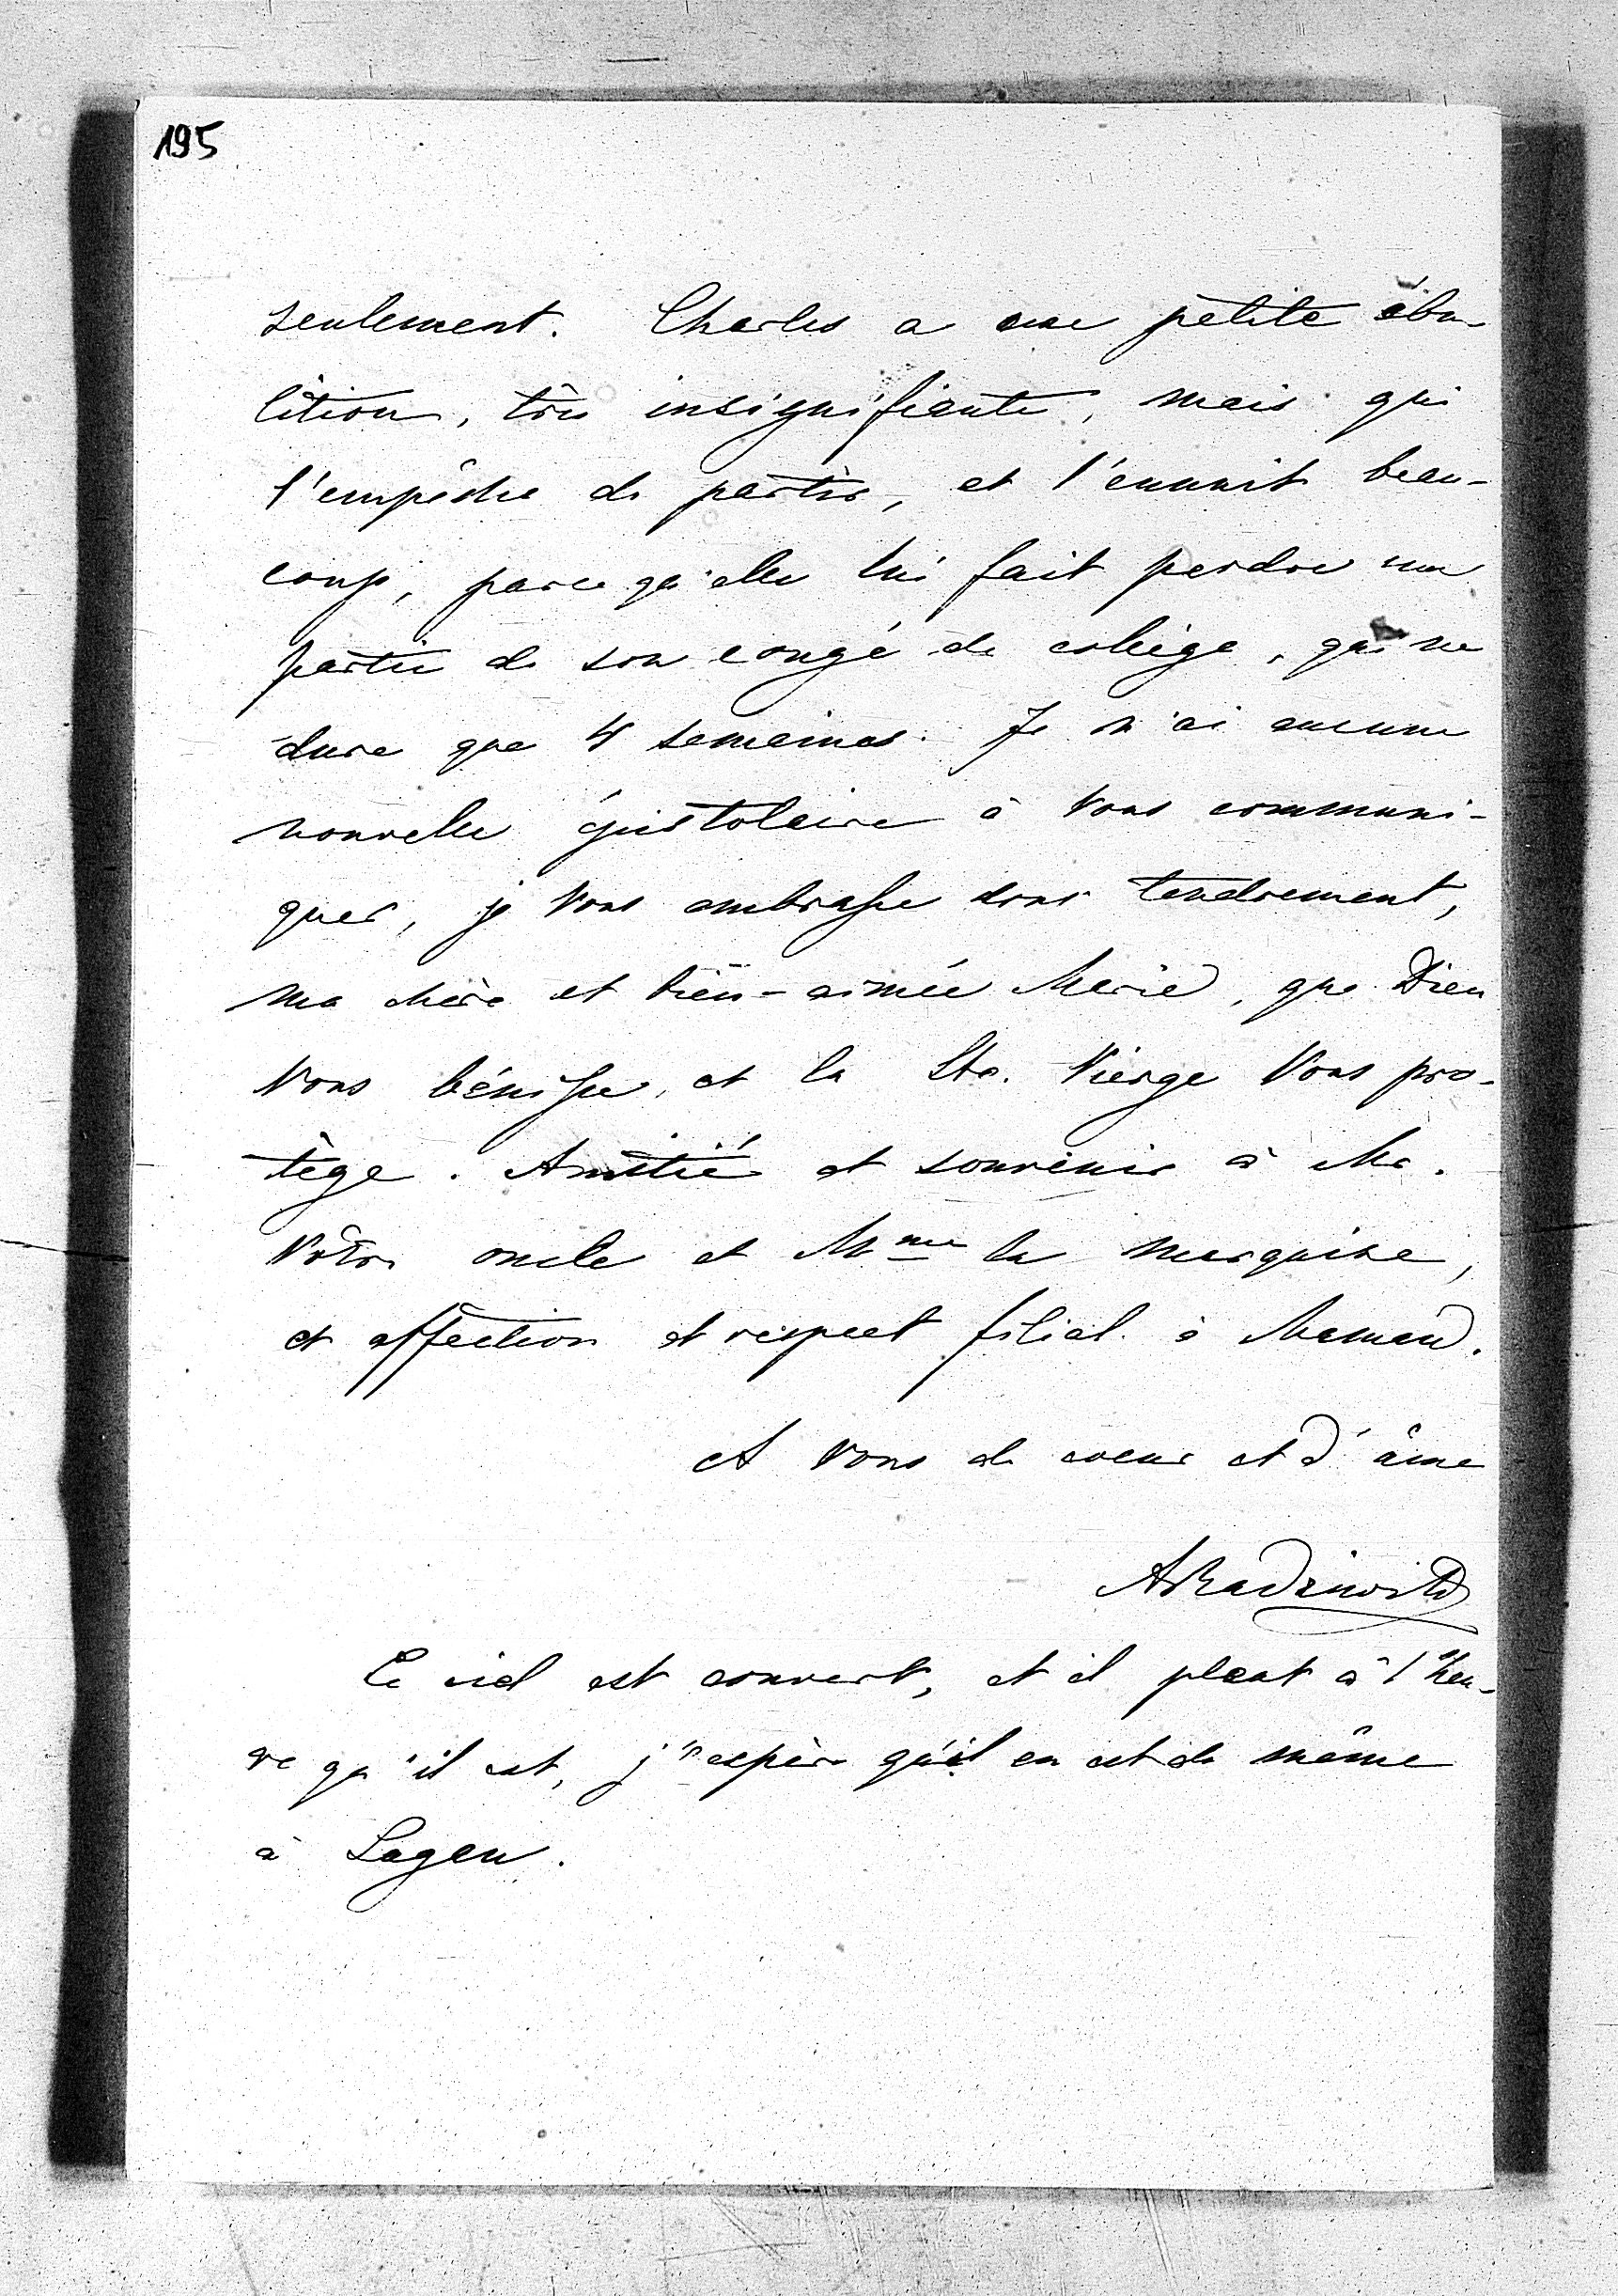 195
seulement. Charles a une petite ébu-
lition, très insignifiante, mais qui
l'empêche de partir, et l'ennuit beau-
coup, parce qu'elle lui fait perdre une
partie de son congé de collège, qui ne
dure que 4 semaines. Je n'ai aucune
nouvelle épistolaire à Vous communi-
quer, je Vous embrasse donc tendrement,
ma chère et bien-aimée Marie, que Dieu
Vous bénisse, et la Ste. Vierge Vous pro-
tège. Amitié et souvenir à Mr.
Vôtre oncle et Mme la marquise,
et affection et respect filial à Maman.
A Vous de coeur et d'âme
ARadziwill
Le ciel est couvert, et il pleut à l'heu-
re qu'il est, j'espère qu'il en est de même
à Sagen.